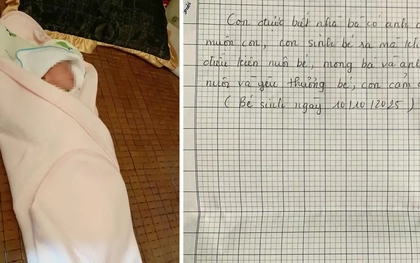 Con được biết nhà ba có anh
muốn con, con sinh bé ra mà
điều kiện nuôi bé, mong ba và anh
nuôi và yêu thương bé, con cảm
( Bé sinh ngày 10/10/2025 )